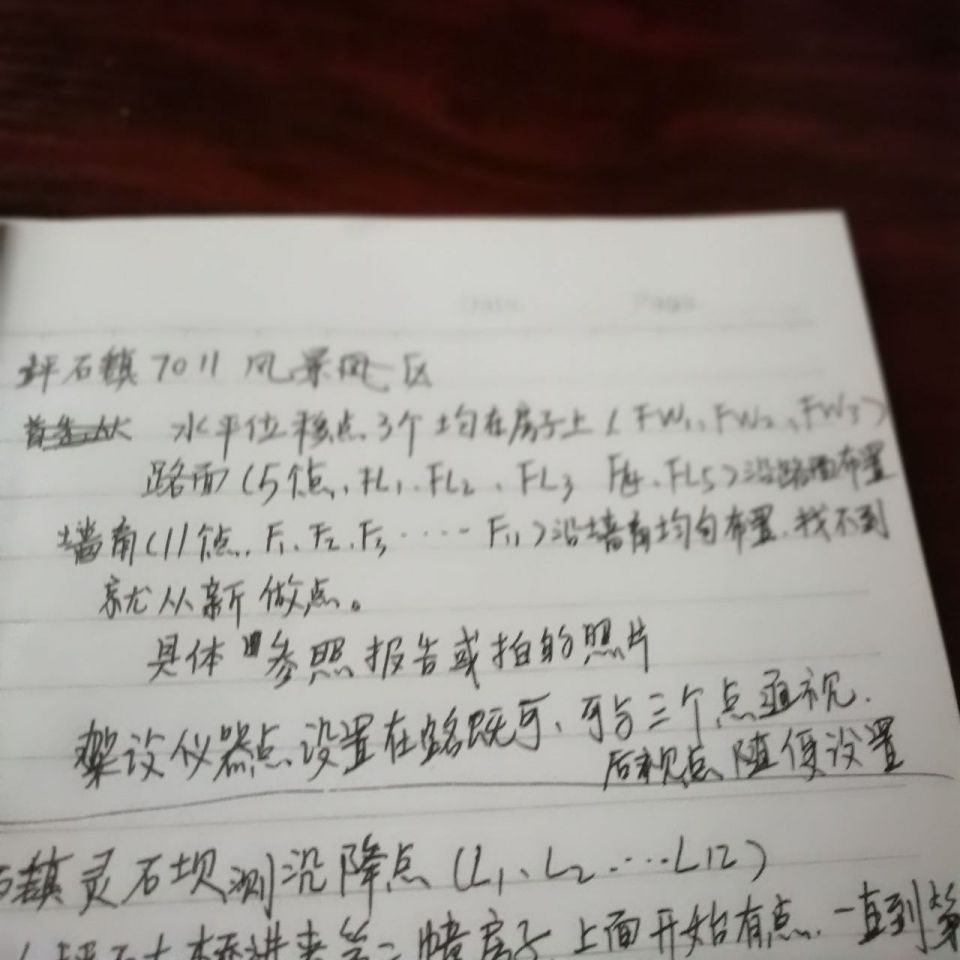 坪石镇7011风景风区
首先从 水平位移点3个均在房子上(FW1、FW2、FW3)
路面(5个点、FL1、FL2、FL3 F4、FL5)沿路面布置
墙角(11个点、F1、F2、F3·····F11)沿墙角均匀布置.找不到
就从新做点。
具体 参照报告或拍的照片
架设仪器点、设置在路既可、可与三个点通视.
后视点随便设置
石镇灵石坝测沉降点(L1、L2····L12)
坪石大桥进来第二幢房子上面开始有点.一直到第